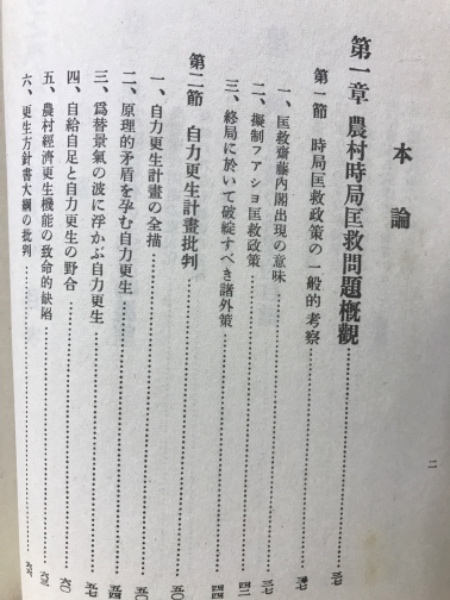 本論
第一章 農村時局匡救問題概觀……三七
第一節 時局匡救政策の一般的考察……三七
一、匡救齋藤内閣出現の意味……三七
二、擬制フアシヨ匡救政策……四二
三、終局に於いて破綻すべき諸外策……四四
第二節 自力更生計畫批判……五〇
一、自力更生計畫の全描……五〇
二、原理的矛盾を孕む自力更生……五四
三、爲替景氣の波に浮かぶ自力更生……五七
四、自給自足と自力更生の野合……六〇
五、農村經濟更生機能の致命的缺陷……六三
六、更生方針書大綱の批判……六六
二